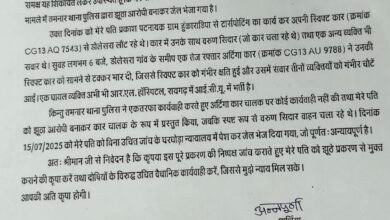 मामले में तमनार थाना पुलिस द्वारा झूठा आरोपी बनाकर जेल भेजा गया है।
उक्त दिनांक को मेरे पति प्रकाश पटनायक ग्राम हुंकराडिपा से टारपोलिंग का कार्य कर अपनी स्विफ्ट कार (क्रमांक
CG13 AQ 7543) से ढोलेसरा लौट रहे थे। कार में उनके साथ वरुण सिदार (जो कार चला रहे थे) तथा एक अन्य व्यक्ति भी
सवार थे। सुबह लगभग 6 बजे, ढोलेसरा गांव के समीप एक तेज रफ्तार अर्टिगा कार (क्रमांक CG13 AU 9788) ने उनकी
स्विफ्ट कार को सामने से टक्कर मार दी, जिससे स्विफ्ट कार को गंभीर क्षति हुई और उसमें सवार तीनों व्यक्तियों को गंभीर चोटें
आईं।एक घायल व्यक्ति अभी भी आर.एल. हॉस्पिटल, रायगढ़ में आई.सी.यू. में भर्ती है।
किन्तु तमनार थाना पुलिस ने एकतरफा कार्यवाही करते हुए अर्टिगा कार चालक पर कोई कार्यवाही नहीं की तथा मेरे पति
को झूठा आरोपी बनाकर कार चालक के रूप में प्रस्तुत किया, जबकि स्पष्ट रूप से वरुण सिदार वाहन चला रहे थे। दिनांक
15/07/2025 को मेरे पति को बिना उचित जांच के घरघोड़ा न्यायालय में पेश कर जेल भेज दिया गया, जो पूर्णतः अन्यायपूर्ण है।
अतः श्रीमान जी से निवेदन है कि कृपया इस पूरे प्रकरण की निष्पक्ष जांच कराते हुए मेरे पति को झूठे प्रकरण से मुक्त
करने की कृपा करें तथा दोषियों के विरुद्ध उचित वैधानिक कार्यवाही करें, जिससे मुझे न्याय मिल सके।
आपकी अति कृपा होगी।
अन्नपूर्णा